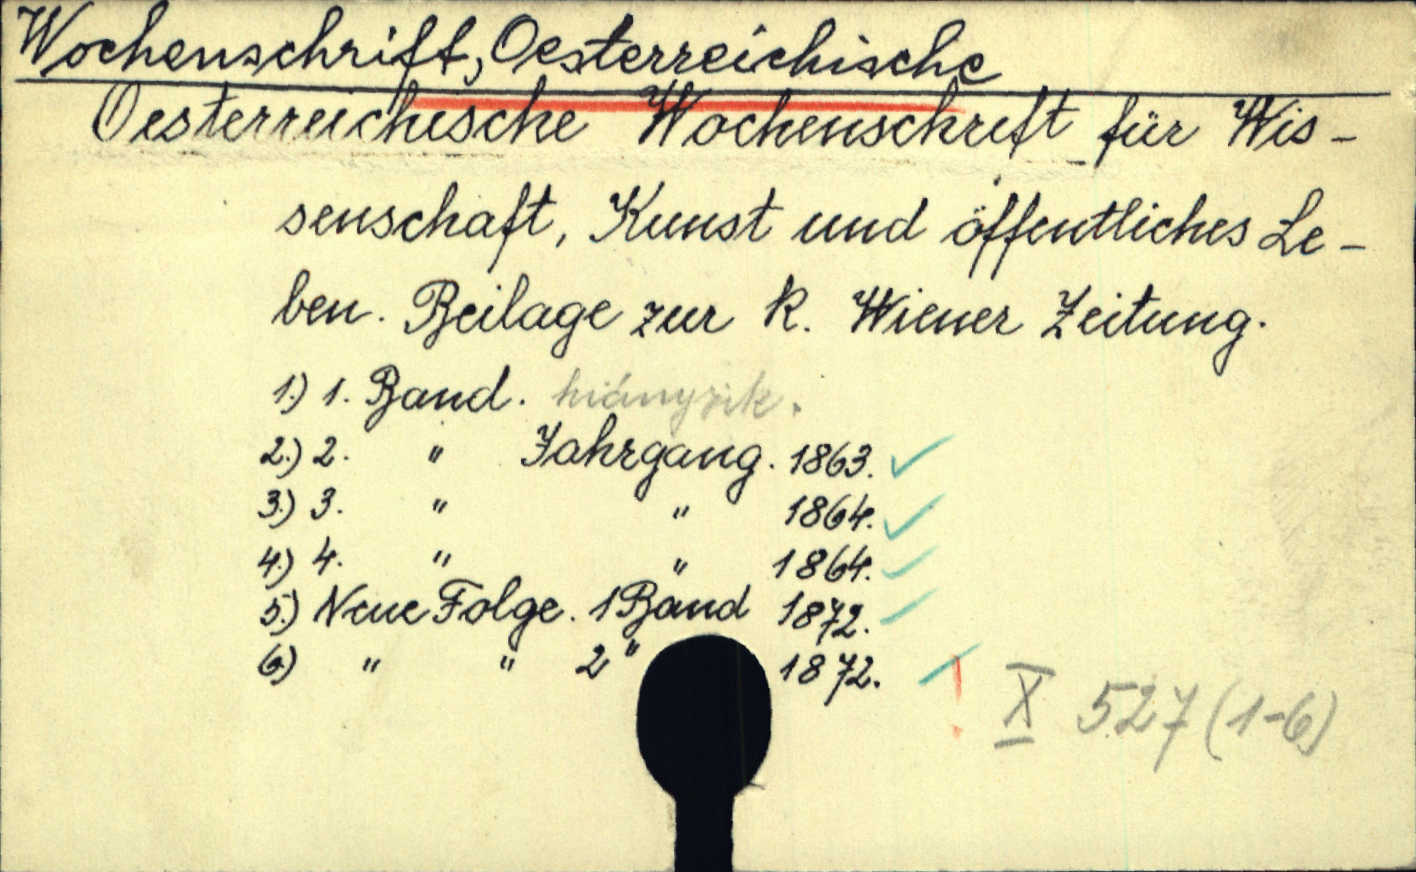 Wochenschrift, Oesterreichische
Oesterreichische Wochenschrift für Wis-
senschaft, Kunst und öffentliches Le-
ben. Beilage zur K. Wiener Zeitung.
1.) 1. Band. hiányzik.
2.) 2. " Jahrgang. 1863. ✓
3.) 3. " " 1864. ✓
4.) 4. " " 1864. ✓
5.) Neue Folge. 1 Band 1872. ✓
6.) " " 2 " 1872. ✓ !
X 527 (1-6)